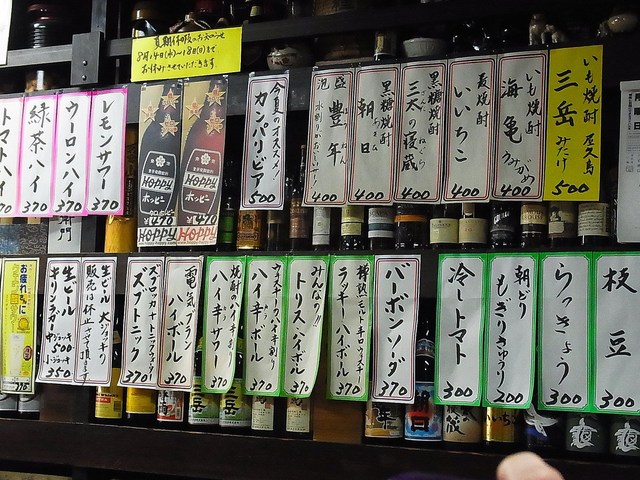 夏期休暇のお知らせ
8月14日(水)~18日(日)まで
お休みさせていただきます
いも焼酎 屋久島
三岳 みたけ
500
いも焼酎
海亀 うみがめ
400
麦焼酎
いいちこ
400
黒糖焼酎
三太の寝蔵
400
黒糖焼酎
朝日
400
泡盛
豊年
400
今夏のオススメ!
カンパリビア
500
HOPPY
ホッピー
HOPPY
HOPPY
ホッピー
HOPPY
レモンサワー
370
ウーロンハイ
370
緑茶ハイ
370
トマトハイ
枝豆
300
らっきょう
300
朝どり
もぎりきゅうり
200
冷しトマト
300
バーボンソーダ
370
樽熟モルト キロウイスキー
ラッキーハイボール
370
みんなノ!!
トリスハイボール
370
ウイスキーハイ半割り
ハイ辛ハイボール
370
焼酎のハイ辛割り
ハイ辛サワー
370
電気ブラン
ハイボール
370
ズブロッカ+トニックウォーター
ズブトニック
370
生ビール 大ジョッキ
販売は休止中です
生ビール
キリンラガー
中ジョッキ
500
小ジョッキ
350
お疲れさまに
370